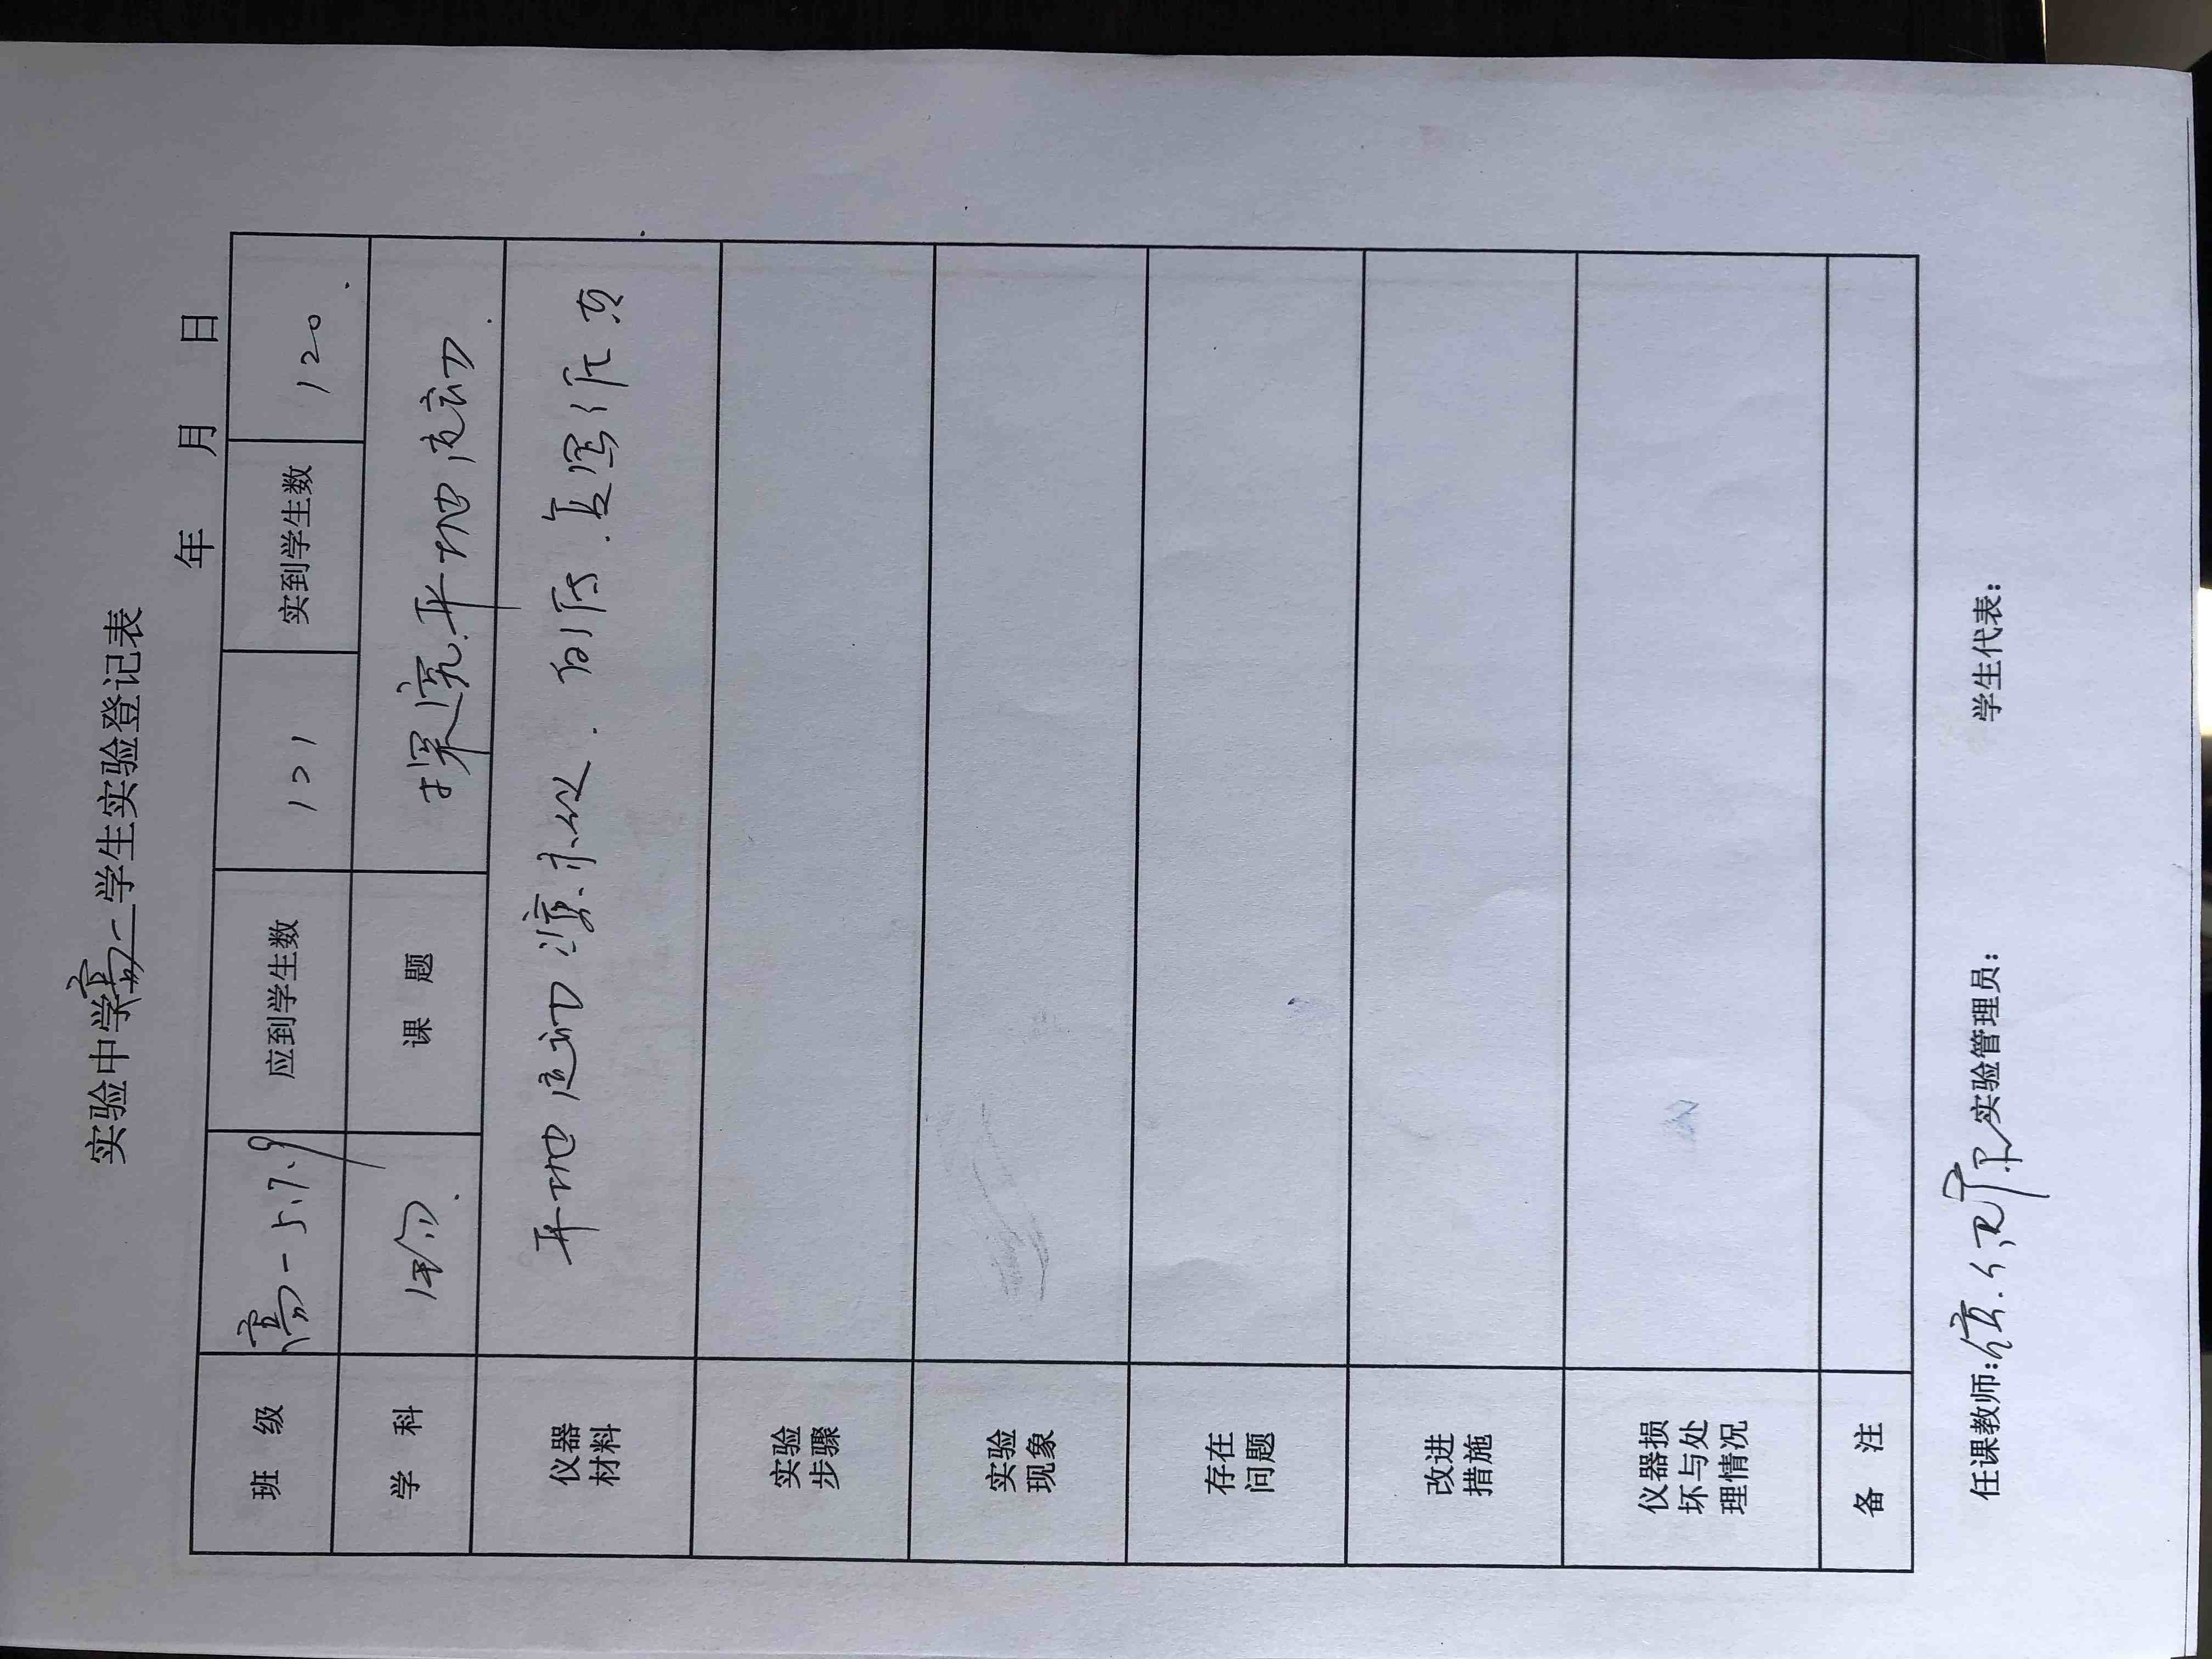 实验中学高一学生实验登记表
年 月 日
班 级 高一5.7.9 应到学生数 121 实到学生数 120
学 科 物 课 题 探究平抛运动
仪器材料 平抛运动演示仪.白纸.复写纸
实验步骤
实验现象
存在问题
改进措施
仪器损坏与处理情况
备 注
任课教师: 实验管理员: 学生代表: